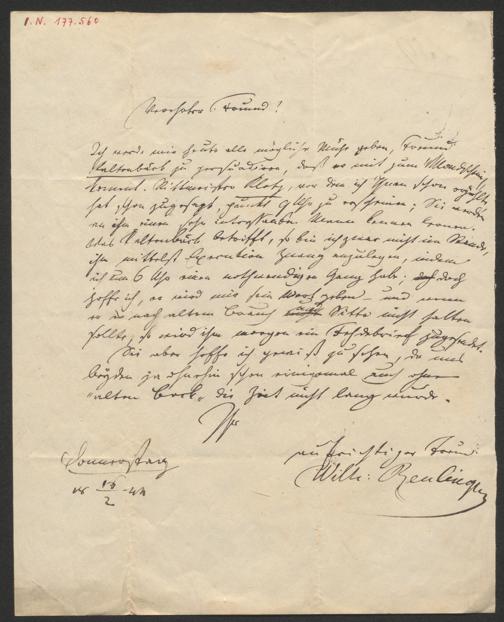 I. N. 177.560
Verehrter Freund!
Ich werde mir heute alle mögliche Mühe geben, Freund
Kaltenbæck zu persuadiren, daß er mit zum Mondschein
kommt. Rittmeister Klotz, von dem ich Ihnen schon erzählte
hat schon zugesagt, punkt 9 Uhr zu erscheinen; Sie werden
an ihm einen sehr Mann kennen lernen.
Was Kaltenbæck betrifft, so bin ich zwar nicht im Stande,
ihm mittelst Execution Zwang anzulegen, indem
ich um 6 Uhr einen nothwendigen Gang habe; doch
hoffe ich, er wird mir sein Wort geben – und wenn
er es nach altem Brauch und Sitte nicht halten
sollte, so wird ihm morgen ein Fehdebrief zugesendet.
Sie aber hoffe ich gewiß zu sehen, da uns
beyden ja ohnehin schon einigemal auch ohne
"alten Bock" die Zeit nicht lang wurde.
Ihr
aufrichtiger Freund
Wilh: Reulingen
Donnerstag